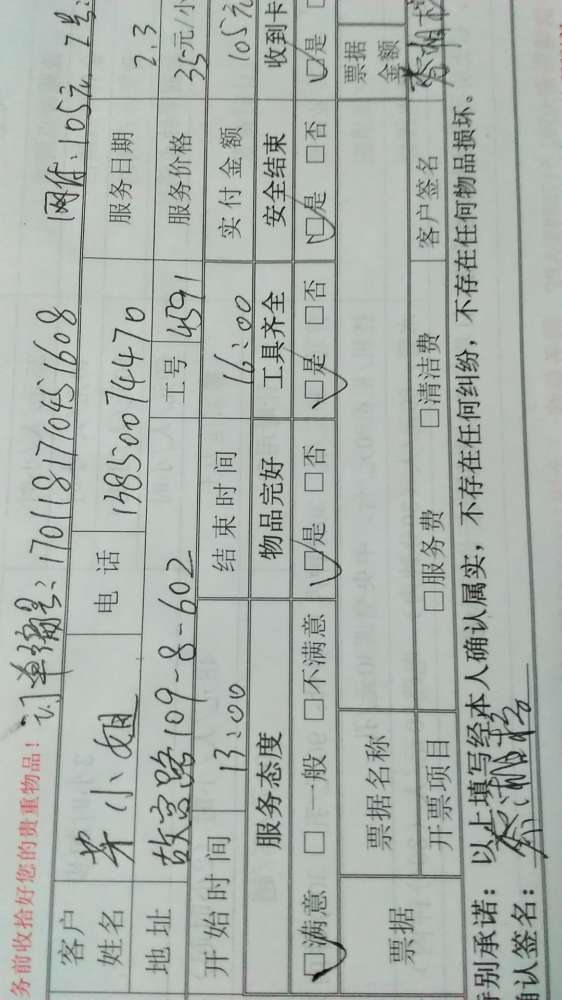 务前收拾好您的贵重物品！
订单编号：170118170451608 网付：105元
客户姓名 小姐 电话 13850074470 服务日期 2.3
地址 故宫路109-8-602 工号 4591 服务价格 35元/小
开始时间 13:00 结束时间 16:00 实付金额 105元
服务态度 物品完好 工具齐全 安全结束 收到卡
☑满意 □一般 □不满意 ☑是 □否 ☑是 □否 ☑是 □否 ☑是
票据 票据名称 票据金额
开票项目 □服务费 □清洁费 客户签名
别承诺：以上填写经本人确认属实，不存在任何纠纷，不存在任何物品损坏。
确认签名：